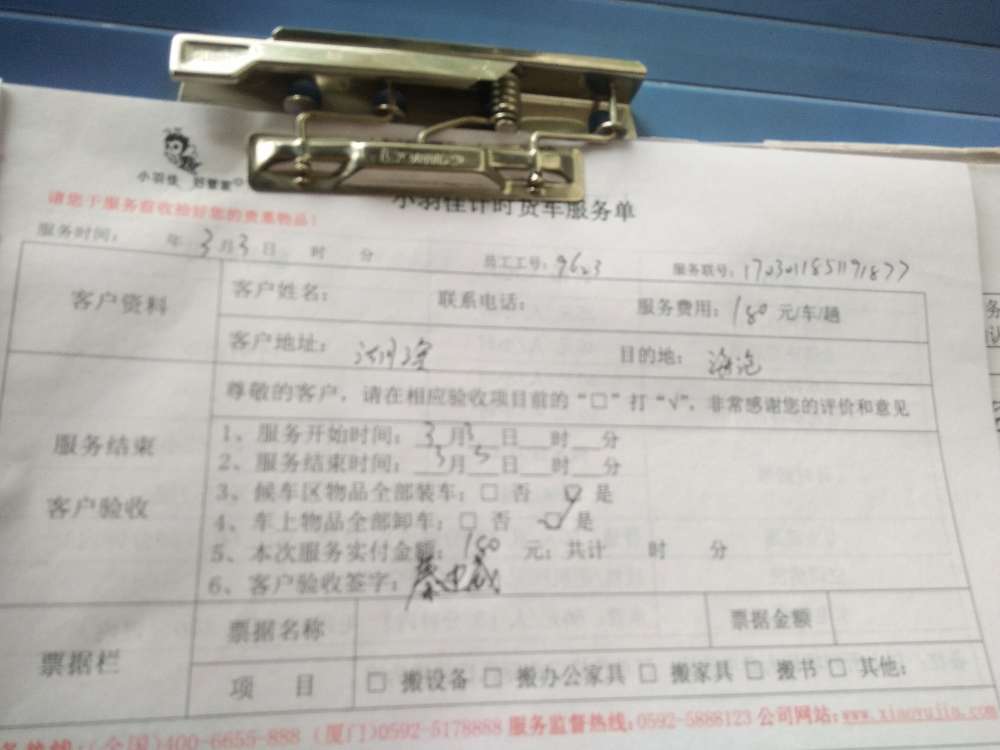 小羽佳 好管家
小羽佳计时货车服务单
请您于服务前收拾好您的贵重物品！
服务时间： 年 3 月 3 日 时 分 员工工号：9623 服务联号：1703011851191877
客户资料
客户姓名： 联系电话： 服务费用：180 元/车/趟
客户地址： 目的地：
服务结束
客户验收
尊敬的客户，请在相应验收项目前的“□”打“√”，非常感谢您的评价和意见
1、服务开始时间：3月3日 时 分
2、服务结束时间：3月3日 时 分
3、候车区物品全部装车：□ 否 ☑ 是
4、车上物品全部卸车：□ 否 ☑ 是
5、本次服务实付金额：180 元；共计 时 分
6、客户验收签字：
票据栏
票据名称 票据金额
项 目 □ 搬设备 □ 搬办公家具 □ 搬家具 □ 搬书 □ 其他：
务热线：(全国)400-6655-888 (厦门)0592-5178888 服务监督热线：0592-5888123 公司网站：www.xiaoyujia.com